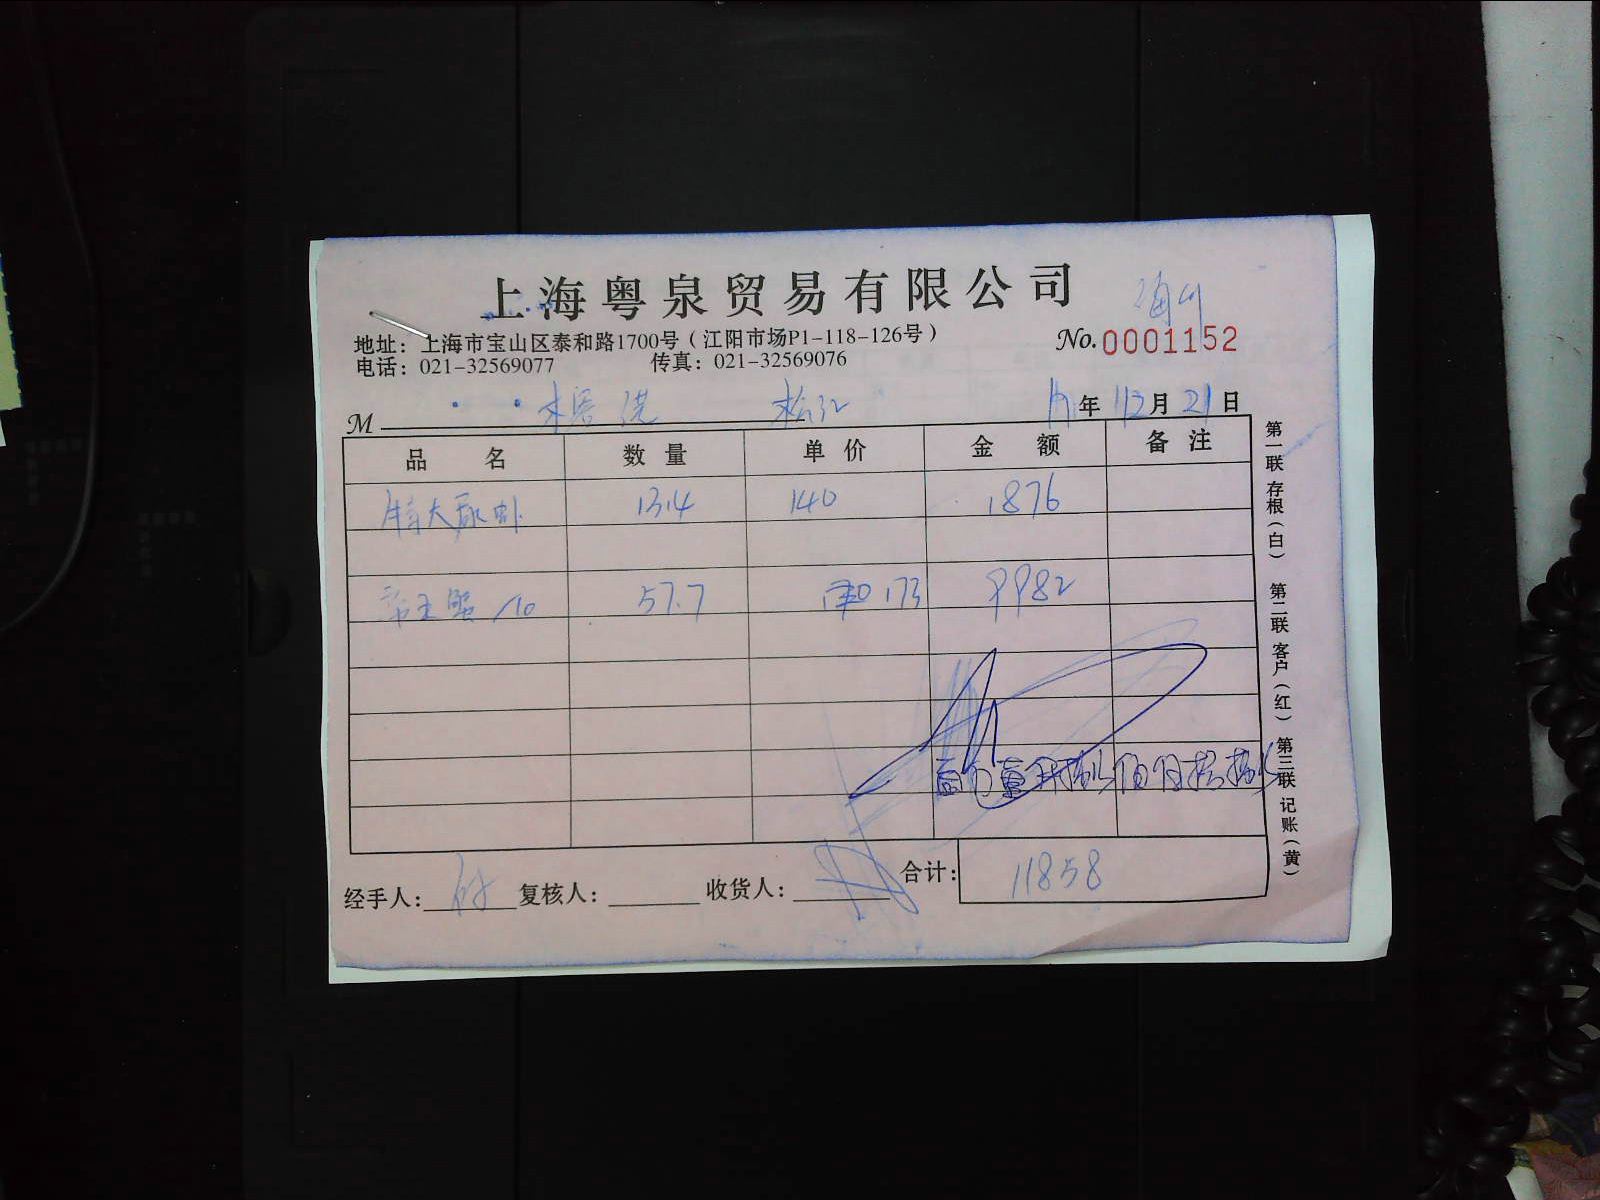 上海粤泉贸易有限公司
地址：上海市宝山区泰和路1700号（江阳市场P1-118-126号）
No.0001152
电话：021-32569077 传真：021-32569076
M 松江 年 12月 21日
品名 数量 单价 金额 备注
特大 13.4 140 1876
帝王蟹 /10 57.7 173 9982
合计：11858
经手人： 复核人： 收货人：
第一联 存根（白） 第二联 客户（红） 第三联 记账（黄）